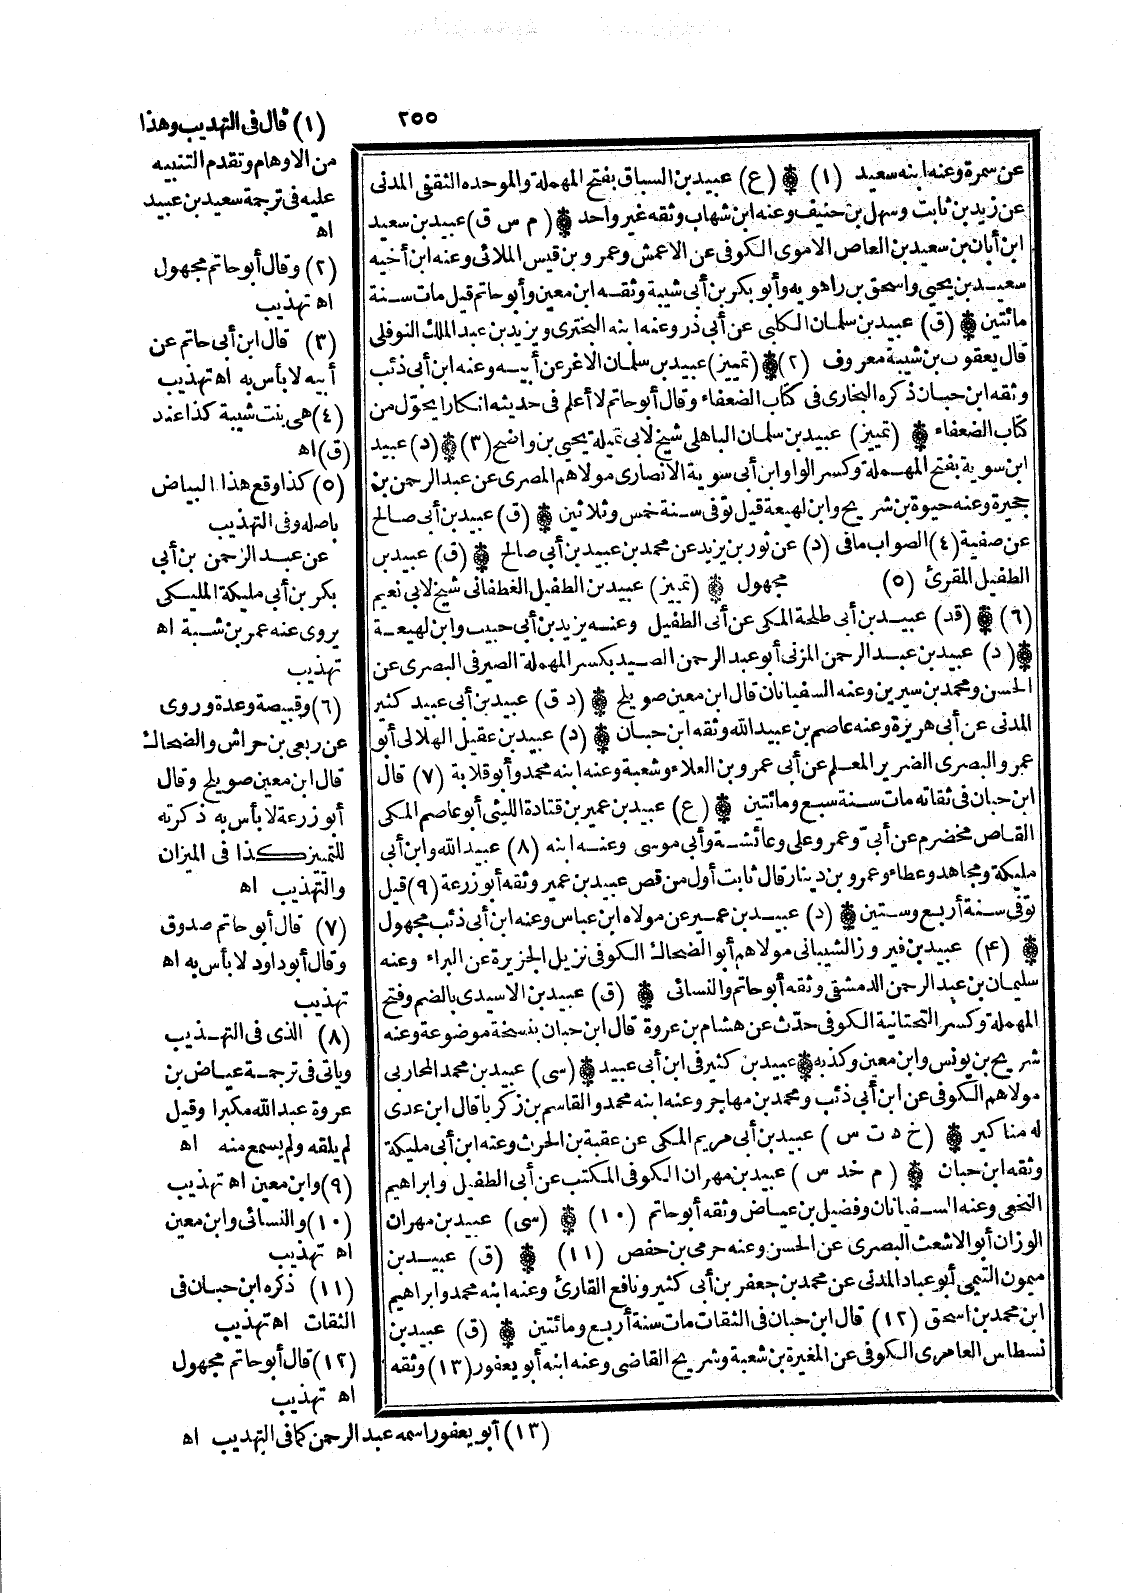 ٢٥٥
عن سمرة وعنه ابنه سعيد (١) ۞ (ع) عبيد بن السباق بفتح المهملة والموحده الثقفى المدنى
عن زيد بن ثابت وسهل بن حنيف وعنه ابن شهاب وثقه غير واحد ۞ (م س ق) عبيد بن سعيد
ابن أبان بن سعيد بن العاص الاموى الكوفى عن الاعمش وعمرو بن قيس الملائى وعنه ابن أخيه
سعيد بن يحيى واسحق بن راهويه وأبو بكر بن أبى شيبة وثقه ابن معين وأبو حاتم قيل مات سنة
مائتين ۞ (ق) عبيد بن سلمان الكلبى عن أبى ذر وعنه ابنه البخترى ويزيد بن عبد الملك النوفلى
قال يعقوب بن شيبة معروف (٢) ۞ (تمييز) عبيد بن سلمان الاغر عن أبيه وعنه ابن أبى ذئب
وثقه ابن حبان ذكره البخارى فى كتاب الضعفاء وقال أبو حاتم لا أعلم فى حديثه انكارا يحوّل من
كتاب الضعفاء ۞ (تمييز) عبيد بن سلمان الباهلى شيخ لابى تميلة يحيى بن واضح (٣) ۞ (د) عبيد
ابن سوية بفتح المهملة وكسر الواو ابن أبى سوية الانصارى مولاهم المصرى عن عبد الرحمن بن
حجيرة وعنه حيوة بن شريح وابن لهيعة قيل توفى سنة خمس وثلاثين ۞ (ق) عبيد بن أبى صالح
عن صفية (٤) الصواب مافى (د) عن ثور بن يزيد عن محمد بن عبيد بن أبى صالح ۞ (ق) عبيد بن
الطفيل المقرئ (٥) مجهول ۞ (تمييز) عبيد بن الطفيل الغطفانى شيخ لابى نعيم
(٦) ۞ (قد) عبيد بن أبى طلحة المكى عن أبى الطفيل وعنه يزيد بن أبى حبيب وابن لهيعة
۞ (د) عبيد بن عبد الرحمن المزنى أبو عبد الرحمن الصيد بكسر المهملة الصيرفى البصرى عن
الحسن ومحمد بن سيرين وعنه السفيانان قال ابن معين صويلح ۞ (د ق) عبيد بن أبى عبيد كثير
المدنى عن أبى هريرة وعنه عاصم بن عبيد الله وثقه ابن حبان ۞ (د) عبيد بن عقيل الهلالى أبو
عمرو البصرى الضرير المعلم عن أبى عمرو بن العلاء وشعبة وعنه ابنه محمد وأبو قلابة (٧) قال
ابن حبان فى ثقاته مات سنة سبع ومائتين ۞ (ع) عبيد بن عمير بن قتادة الليثى أبو عاصم المكى
القاص مخضرم عن أبىّ وعمر وعلى وعائشة وأبى موسى وعنه ابنه (٨) عبيد الله وابن أبى
مليكة ومجاهد وعطاء وعمرو بن دينار قال ثابت أول من قص عبيد بن عمير وثقه أبو زرعة (٩) قيل
توفى سنة أربع وستين ۞ (د) عبيد بن عمير عن مولاه ابن عباس وعنه ابن أبى ذئب مجهول
۞ (٤) عبيد بن فيروز الشيبانى مولاهم أبو الضحاك الكوفى نزيل الجزيرة عن البراء وعنه
سليمان بن عبد الرحمن الدمشقى وثقه أبو حاتم والنسائى ۞ (ق) عبيد بن الاسيدى بالضم وفتح
المهملة وكسر التحتانية الكوفى حدّث عن هشام بن عروة قال ابن حبان بنسخة موضوعة وعنه
شريح بن يونس وابن معين وكذبه ۞ عبيد بن كثير فى ابن أبى عبيد ۞ (سى) عبيد بن محمد المحاربى
مولاهم الكوفى عن ابن أبى ذئب ومحمد بن مهاجر وعنه ابنه محمد والقاسم بن زكريا قال ابن عدى
له مناكير ۞ (خ د ت س) عبيد بن أبى مريم المكى عن عقبة بن الحرث وعنه ابن أبى مليكة
وثقه ابن حبان ۞ (م خد س) عبيد بن مهران الكوفى المكتب عن أبى الطفيل وابراهيم
النخعى وعنه السفيانان وفضيل بن عياض وثقه أبو حاتم (١٠) ۞ (سى) عبيد بن مهران
الوزان أبو الاشعث البصرى عن الحسن وعنه حرمى بن حفص (١١) ۞ (ق) عبيد بن
ميمون التيمى أبو عباد المدنى عن محمد بن جعفر بن أبى كثير ونافع القارئ وعنه ابنه محمد وابراهيم
ابن محمد بن اسحق (١٢) قال ابن حبان فى الثقات مات سنة أربع ومائتين ۞ (ق) عبيد بن
نسطاس العامرى الكوفى عن المغيرة بن شعبة وشريح القاضى وعنه ابنه أبو يعفور (١٣) وثقه
(١) قال فى التهذيب وهذا
من الاوهام وتقدم التنبيه
عليه فى ترجمة سعيد بن عبيد
اه
(٢) وقال أبو حاتم مجهول
اه تهذيب
(٣) قال ابن أبى حاتم عن
أبيه لا بأس به اه تهذيب
(٤) هى بنت شيبة كذا عند
(ق) اه
(٥) كذا وقع هذا البياض
باصله وفى التهذيب
عن عبد الرحمن بن أبى
بكر بن أبى مليكة المليكى
يروى عنه عمر بن شبة اه
تهذيب
(٦) وقبيصة وعدة وروى
عن ربعى بن حراش والضحاك
قال ابن معين صويلح وقال
أبو زرعة لا بأس به ذكرته
للتمييز كذا فى الميزان
والتهذيب اه
(٧) قال أبو حاتم صدوق
وقال أبو داود لا بأس به اه
تهذيب
(٨) الذى فى التهذيب
وياتى فى ترجمة عياض بن
عروة عبد الله مكبرا وقيل
لم يلقه ولم يسمع منه اه
(٩) وابن معين اه تهذيب
(١٠) والنسائى وابن معين
اه تهذيب
(١١) ذكره ابن حبان فى
الثقات اه تهذيب
(١٢) قال أبو حاتم مجهول
اه تهذيب
(١٣) أبو يعفور اسمه عبد الرحمن كما فى التهذيب اه